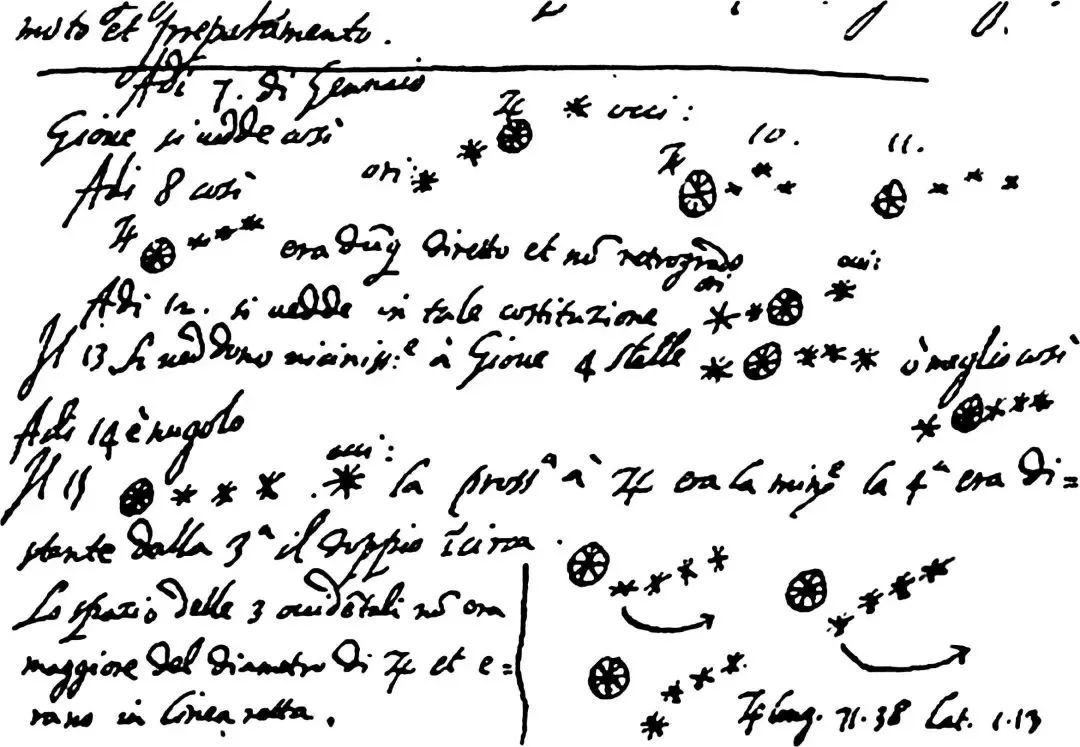 moto et
Adi 7. di Gennaio
Giove si vedde così ♃ occi:
ori:
10. 11.
♃
Adi 8 così
♃ era dūq diretto et nō retrogrado
ori occi:
Adi 12. si vedde in tale costituzione
Il 13 si veddono vicinissᵉ à Giove 4 stelle ò meglio così
Adi 14 è nugolo
Il 15 occi: la prossᵃ à ♃ era la minᵉ la 4ᵃ era di=
stante dalla 3ᵃ il doppio īcirca.
Lo spazio delle 3 occidētali nō era
maggiore del diametro di ♃ et e=
rano in linea retta.
♃ long. 71.38 Lat. 1.13